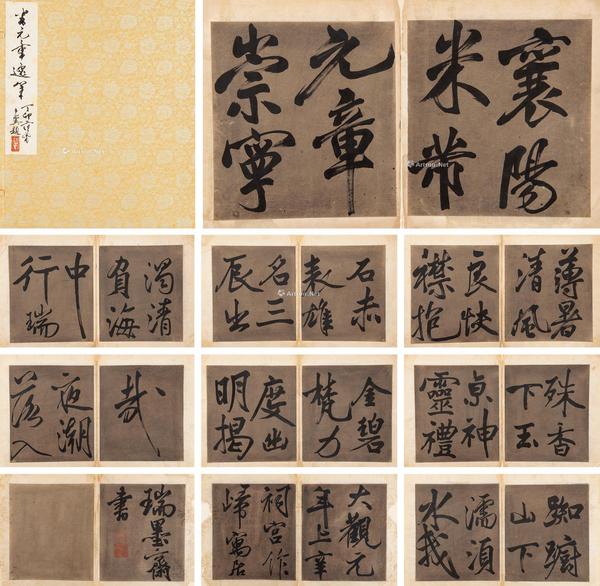 米元章
襄陽
米芾
元章
崇寧
薄暑
清風
良快
襟抱
石赤
表雄
名三
辰出
濁清
負海
中
行瑞
殊香
下玉
神
靈禮
金碧
梵力
度幽
明揭
哉
夜潮
落入
踟躕
山下
濡須
水我
大觀元
年上章
祠宮作
歸寫居
瑞墨齋
書
Artron.Net